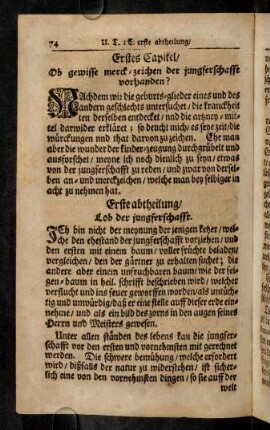 74 II. T. 1 C. erste abtheilung/
Erstes Capitel/
Ob gewisse merck-zeichen der jungferschafft
vorhanden?
NAchdem wir die geburts-glieder eines und des
andern geschlechts untersuchet/ die kranckheit
en derselben entdecket/ und die artzney-mit-
tel darwider erkläret; so deucht mich/ es seye zeit/ die
würckungen und that darvon zu zeichen. Ehe man
aber die wunder der kinder-zeugung durchgrübelt und
ausforschet/ meyne ich noch dienlich zu seyn/ etwas
von der jungferschafft zu reden/ und zwar von dersel-
ben an- und merckzeichen/ welche man bey selbiger in
acht zu nehmen hat.
Erste abtheilung/
Lob der jungferschafft.
ICh bin nicht der meynung der jenigen ketzer/ wel-
che den ehestand der jungferschafft vorziehen/ und
den ersten mit einem baum/ voller früchte beladen/
vergleichen/ den der gärtner zu erhalten suchet; die
andere aber einem unfruchtbaren baum/ wie der fei-
gen-baum in heil. schrifft beschrieben wird/ welcher
verflucht und ins feuer geworffen worden/ als untüch-
tig und unwürdig/ daß er eine stelle auff dieser erde ein-
nehme/ und als ein bild des zorns in den augen seines
Herrn und Meisters gewesen.
Unter allen ständen des lebens kan die jungfer-
schafft vor den ersten und vornehmsten mit gerechnet
werden. Die schwere bemühung/ welche erfordert
wird/ dißfalls der natur zu widerstehen/ ist sicher-
lich eine von den vornehmsten dingen/ so sie auff der
welt